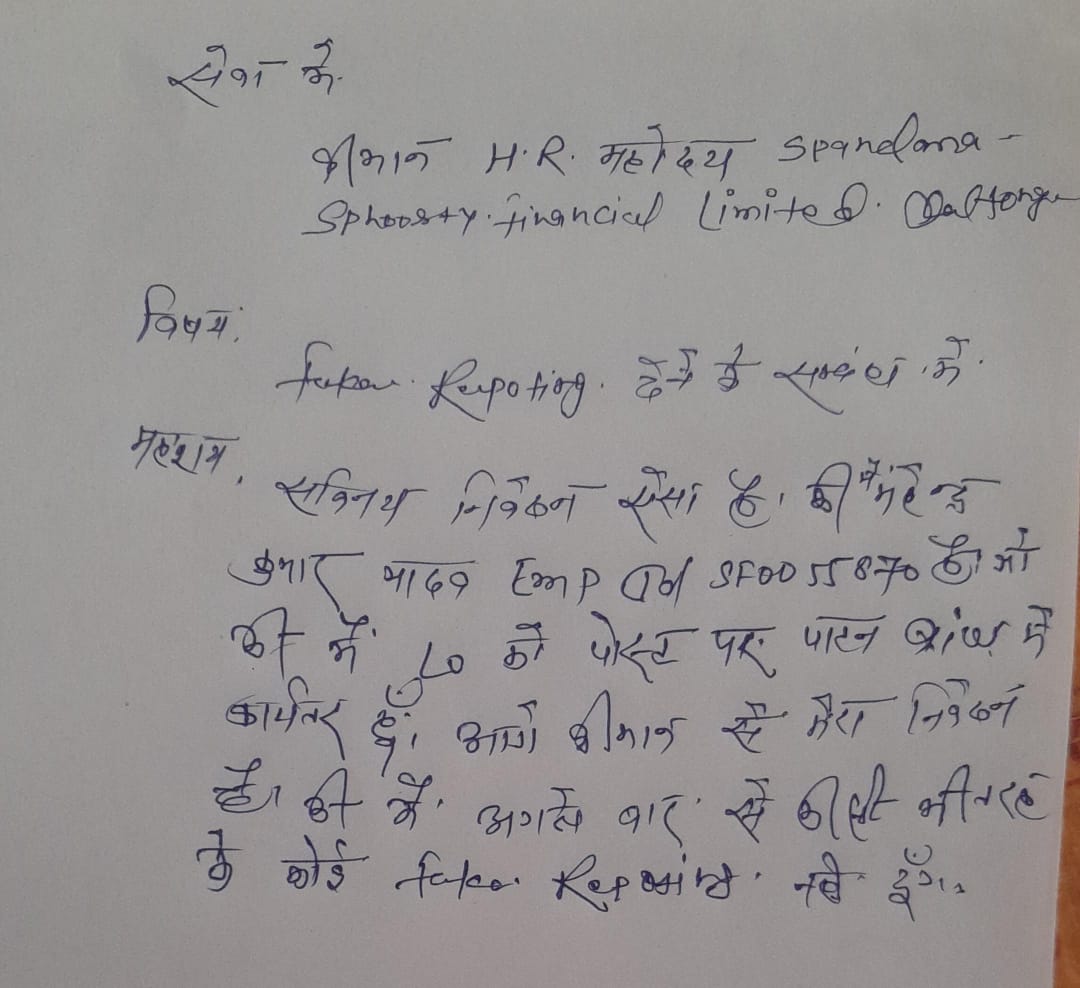 सेवा में.
श्रीमान H.R. महोदय Spandana -
Sphoorty. financial Limited. Daltonga
विषय.
fake. Repoting. देने के सम्बंध में.
महाशय,
सविनय निवेदन ऐसा है, की मैं महेन्द्र
कुमार यादव Emp Id SF0055870 है। जो
की मैं LO को पोस्ट पर पाटन ब्रांच में
कार्यतर हूँ। आगे श्रीमान से मेरा निवेदन
है। की मैं. अगले बार से कीसी भी तरह
के कोई fake. नही दूँगा